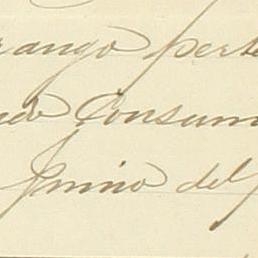 rango perte
ndo Consum
Junio del